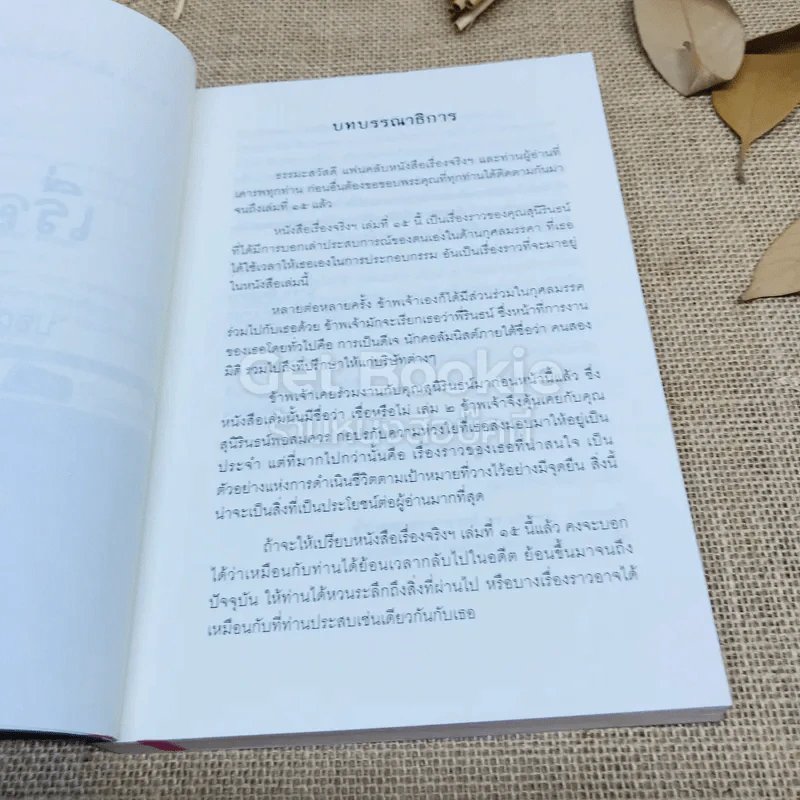 บทบรรณาธิการ
ธรรมะสวัสดี แฟนคลับหนังสือเรื่องจริงฯ และท่านผู้อ่านที่
เคารพทุกท่าน ก่อนอื่นต้องขอขอบพระคุณที่ทุกท่านได้ติดตามกันมา
จนถึงเล่มที่ ๑๕ แล้ว
หนังสือเรื่องจริงฯ เล่มที่ ๑๕ นี้ เป็นเรื่องราวของคุณสุนิรินธน์
ที่ได้มีการบอกเล่าประสบการณ์ของตนเองในด้านกุศลมรรคา ที่เธอ
ได้ใช้เวลาให้เธอเองในการประกอบกรรม อันเป็นเรื่องราวที่จะมาอยู่
ในหนังสือเล่มนี้
หลายต่อหลายครั้ง ข้าพเจ้าเองก็ได้มีส่วนร่วมในกุศลมรรค
ร่วมไปกับเธอด้วย ข้าพเจ้ามักจะเรียกเธอว่าพี่รินธน์ ซึ่งหน้าที่การงาน
ของเธอโดยทั่วไปคือ การเป็นดีเจ นักคอลัมนิสต์ภายใต้ชื่อว่า คนสอง
มิติ รวมไปถึงที่ปรึกษาให้แก่บริษัทต่างๆ
Get Bookie
ข้าพเจ้าเคยร่วมงานกับคุณสุนิรินธน์มาก่อนหน้านี้แล้ว ซึ่ง
หนังสือเล่มนั้นมีชื่อว่า เชื่อหรือไม่ เล่ม ๒ ข้าพเจ้าจึงคุ้นเคยกับคุณ
สุนิรินธน์พอสมควร กอปรกับความห่วงใยที่เธอส่งมอบมาให้อยู่เป็น
ประจำ แต่ที่มากไปกว่านั้นคือ เรื่องราวของเธอที่น่าสนใจ เป็น
ตัวอย่างแห่งการดำเนินชีวิตตามเป้าหมายที่วางไว้อย่างมีจุดยืน สิ่งนี้
น่าจะเป็นสิ่งที่เป็นประโยชน์ต่อผู้อ่านมากที่สุด
ถ้าจะให้เปรียบหนังสือเรื่องจริงฯ เล่มที่ ๑๕ นี้แล้ว คงจะบอก
ได้ว่าเหมือนกับท่านได้ย้อนเวลากลับไปในอดีต ย้อนขึ้นมาจนถึง
ปัจจุบัน ให้ท่านได้หวนระลึกถึงสิ่งที่ผ่านไป หรือบางเรื่องราวอาจได้
เหมือนกับที่ท่านประสบเช่นเดียวกันกับเธอ